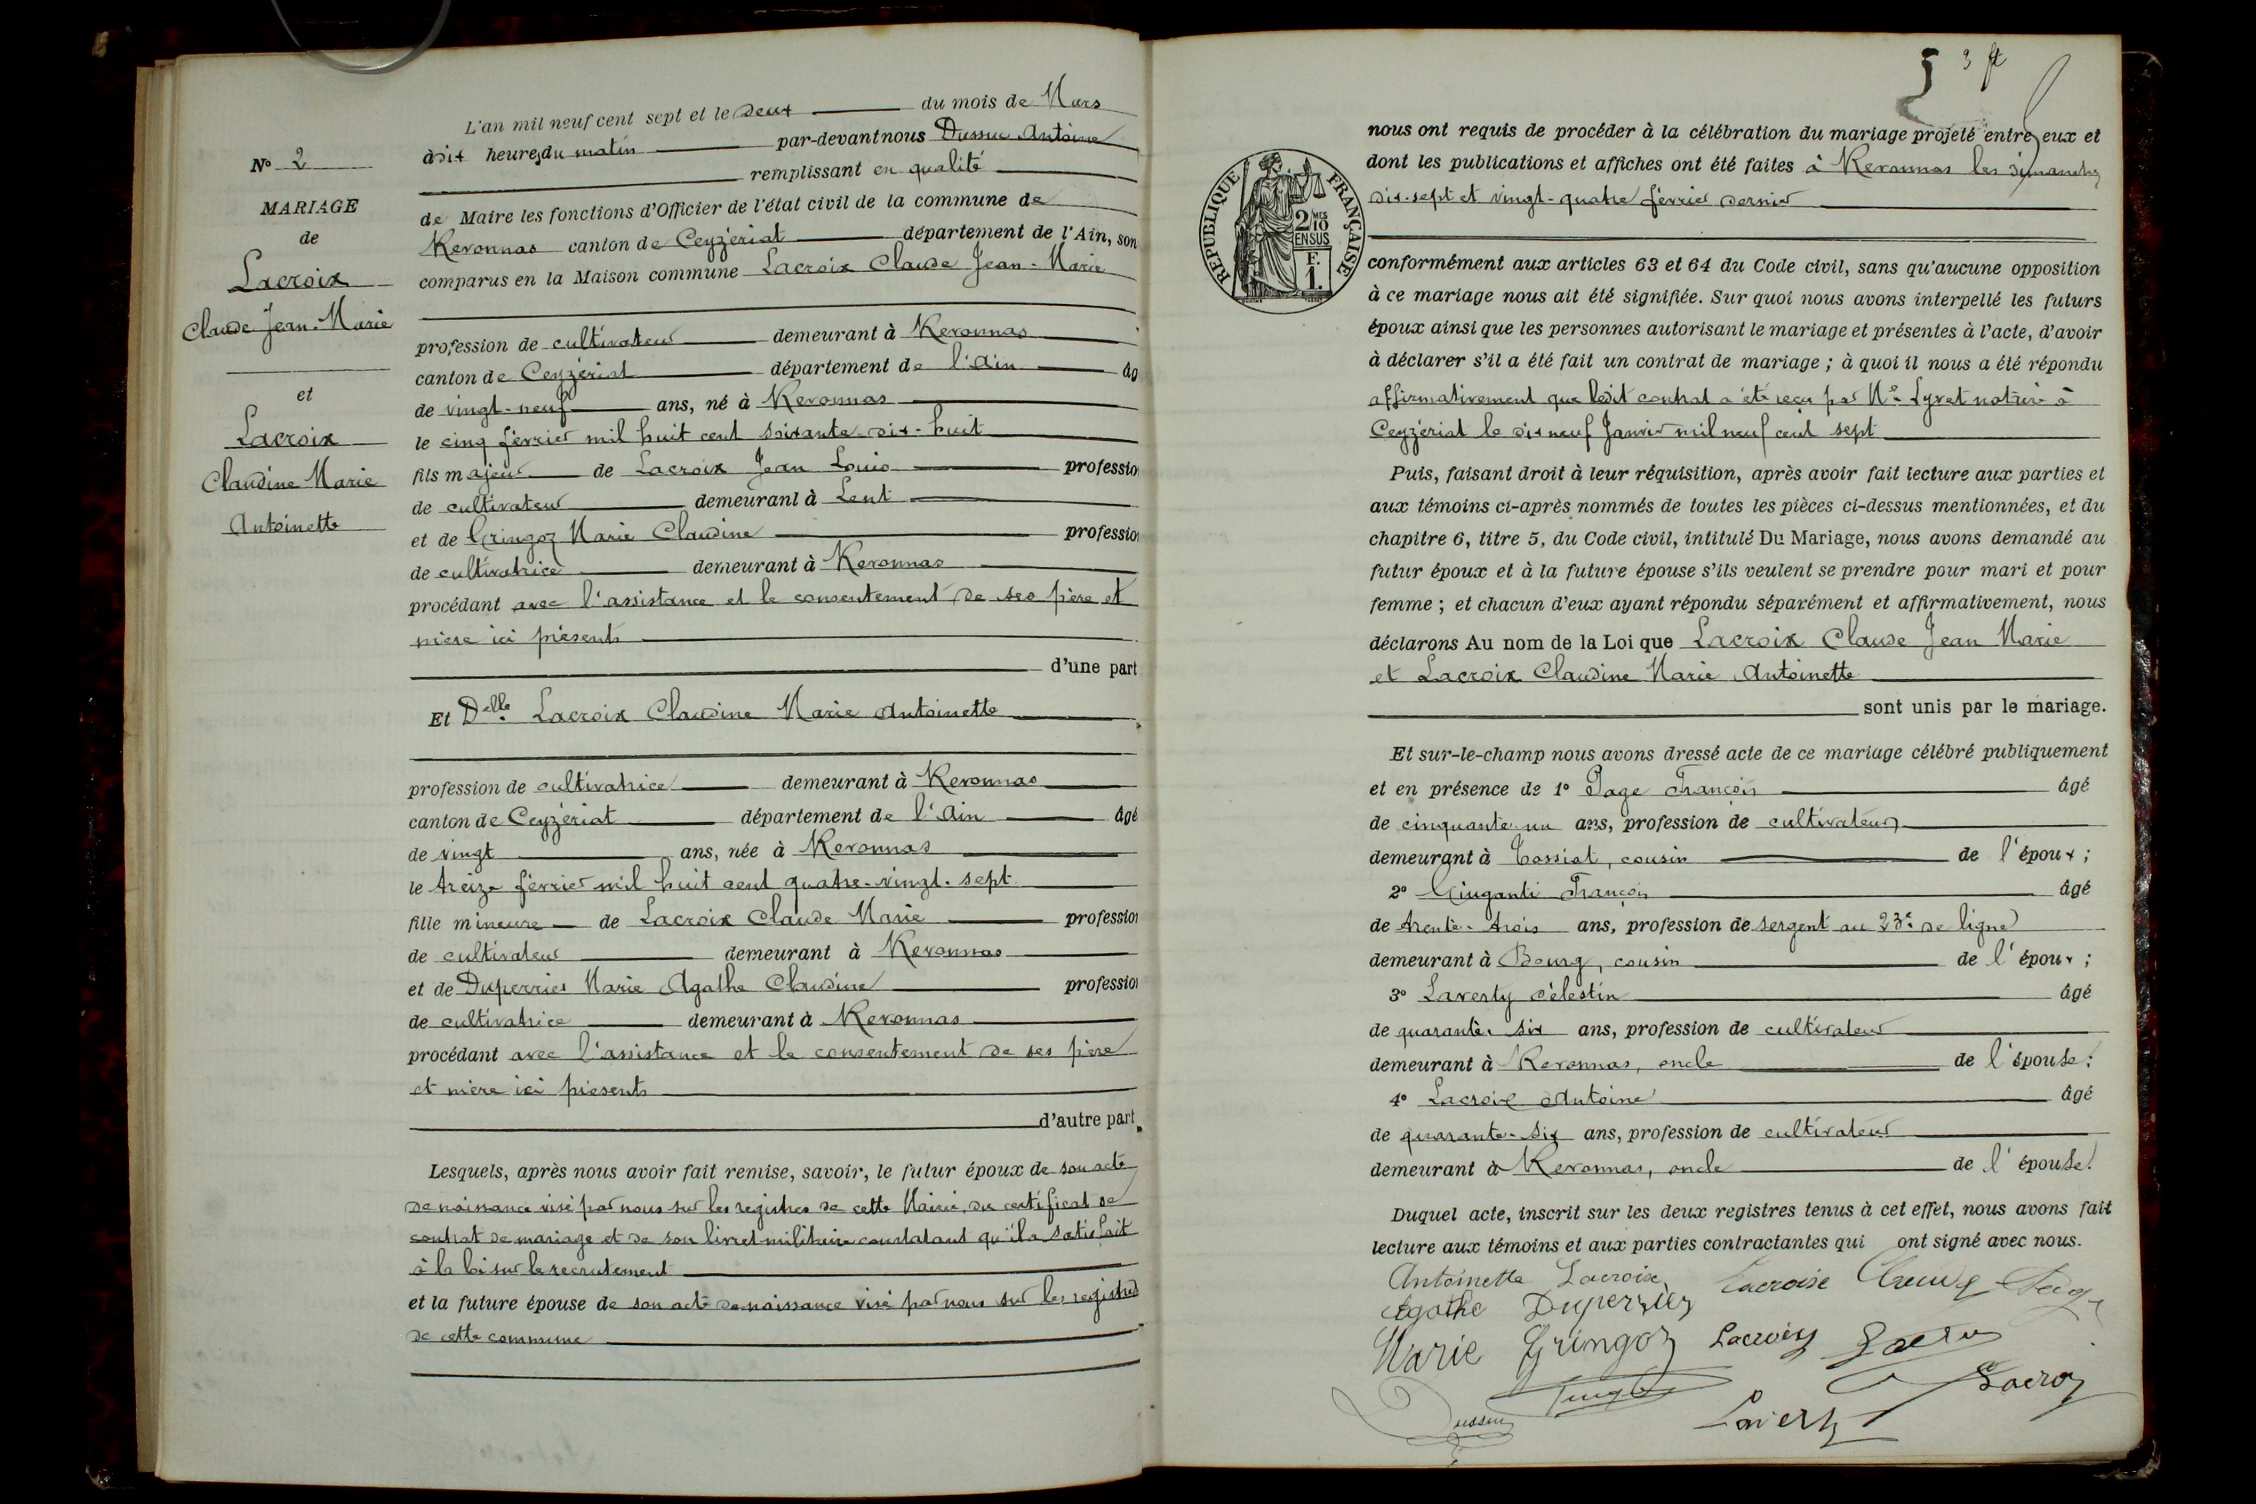 N° 2
MARIAGE
de
Lacroix
Claude Jean-Marie
et
Lacroix
Claudine Marie
Antoinette
L'an mil neuf cent sept et le deux du mois de Mars
à dix heures du matin par-devant nous Dussuc Antoine
remplissant en qualité
de Maire les fonctions d'Officier de l'état civil de la commune de
Revonnas canton de Ceyzériat département de l'Ain, son
comparus en la Maison commune Lacroix Claude Jean-Marie
profession de cultivateur demeurant à Revonnas
canton de Ceyzériat département de l'Ain âg
de vingt-neuf ans, né à Revonnas
le cinq février mil huit cent soixante-dix-huit
fils majeur de Lacroix Jean Louis professio
de cultivateur demeurant à Lent
et de Gringoz Marie Claudine profession
de cultivatrice demeurant à Revonnas
procédant avec l'assistance et le consentement de ses père et
mère ici présents
d'une part
Et Delle Lacroix Claudine Marie Antoinette
profession de cultivatrice demeurant à Revonnas
canton de Ceyzériat département de l'Ain âgé
de vingt ans, née à Revonnas
le treize février mil huit cent quatre-vingt-sept
fille mineure de Lacroix Claude Marie profession
de cultivateur demeurant à Revonnas
et de Duperrier Marie Agathe Claudine profession
de cultivatrice demeurant à Revonnas
procédant avec l'assistance et le consentement de ses père
et mère ici présents
d'autre part.
Lesquels, après nous avoir fait remise, savoir, le futur époux de son acte
de naissance visé par nous sur les registres de cette Mairie, du certificat de
contrat de mariage et de son livret militaire constatant qu'il a satisfait
à la loi sur le recrutement
et la future épouse de son acte de naissance visé par nous sur les registres
de cette commune
3 ft
RÉPUBLIQUE FRANÇAISE
2 MES
10
EN SUS
F.
1.
nous ont requis de procéder à la célébration du mariage projeté entre eux et
dont les publications et affiches ont été faites à Revonnas les dimanches
dix-sept et vingt-quatre février dernier
conformément aux articles 63 et 64 du Code civil, sans qu'aucune opposition
à ce mariage nous ait été signifiée. Sur quoi nous avons interpellé les futurs
époux ainsi que les personnes autorisant le mariage et présentes à l'acte, d'avoir
à déclarer s'il a été fait un contrat de mariage ; à quoi il nous a été répondu
affirmativement que ledit contrat a été reçu par Me Lyvet notaire à
Ceyzériat le dix neuf Janvier mil neuf cent sept
Puis, faisant droit à leur réquisition, après avoir fait lecture aux parties et
aux témoins ci-après nommés de toutes les pièces ci-dessus mentionnées, et du
chapitre 6, titre 5, du Code civil, intitulé Du Mariage, nous avons demandé au
futur époux et à la future épouse s'ils veulent se prendre pour mari et pour
femme ; et chacun d'eux ayant répondu séparément et affirmativement, nous
déclarons Au nom de la Loi que Lacroix Claude Jean Marie
et Lacroix Claudine Marie Antoinette
sont unis par le mariage.
Et sur-le-champ nous avons dressé acte de ce mariage célébré publiquement
et en présence de 1° Page François âgé
de cinquante-un ans, profession de cultivateur
demeurant à Tossiat, cousin de l'époux ;
2° François âgé
de trente-trois ans, profession de sergent au 23e de ligne
demeurant à Bourg, cousin de l'époux ;
3° Laverty Célestin âgé
de quarante-six ans, profession de cultivateur
demeurant à Revonnas, oncle de l'épouse ;
4° Lacroix Antoine âgé
de quarante-six ans, profession de cultivateur
demeurant à Revonnas, oncle de l'épouse.
Duquel acte, inscrit sur les deux registres tenus à cet effet, nous avons fait
lecture aux témoins et aux parties contractantes qui ont signé avec nous.
Antoinette Lacroix Lacroix Claude Page
Agathe Duperrier
Marie Gringoz Lacroix
Lacroix
Dussuc